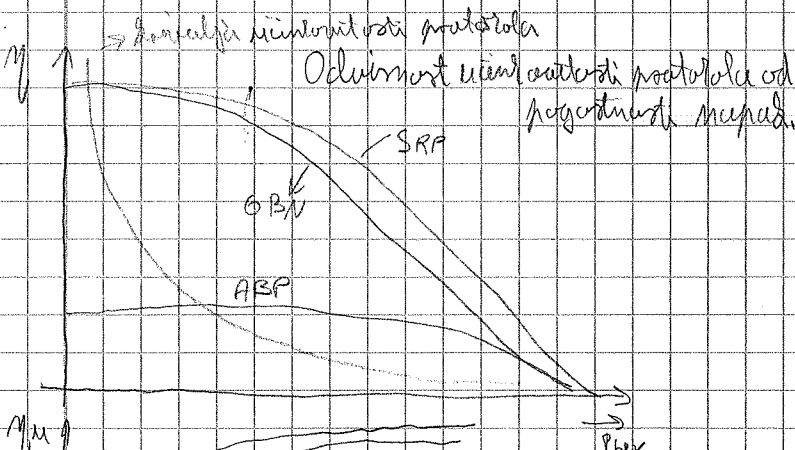 η
učinkovitosti protokola
Odvisnost učinkovitosti protokola od
pogostnosti napak.
SRP
GBN
ABP